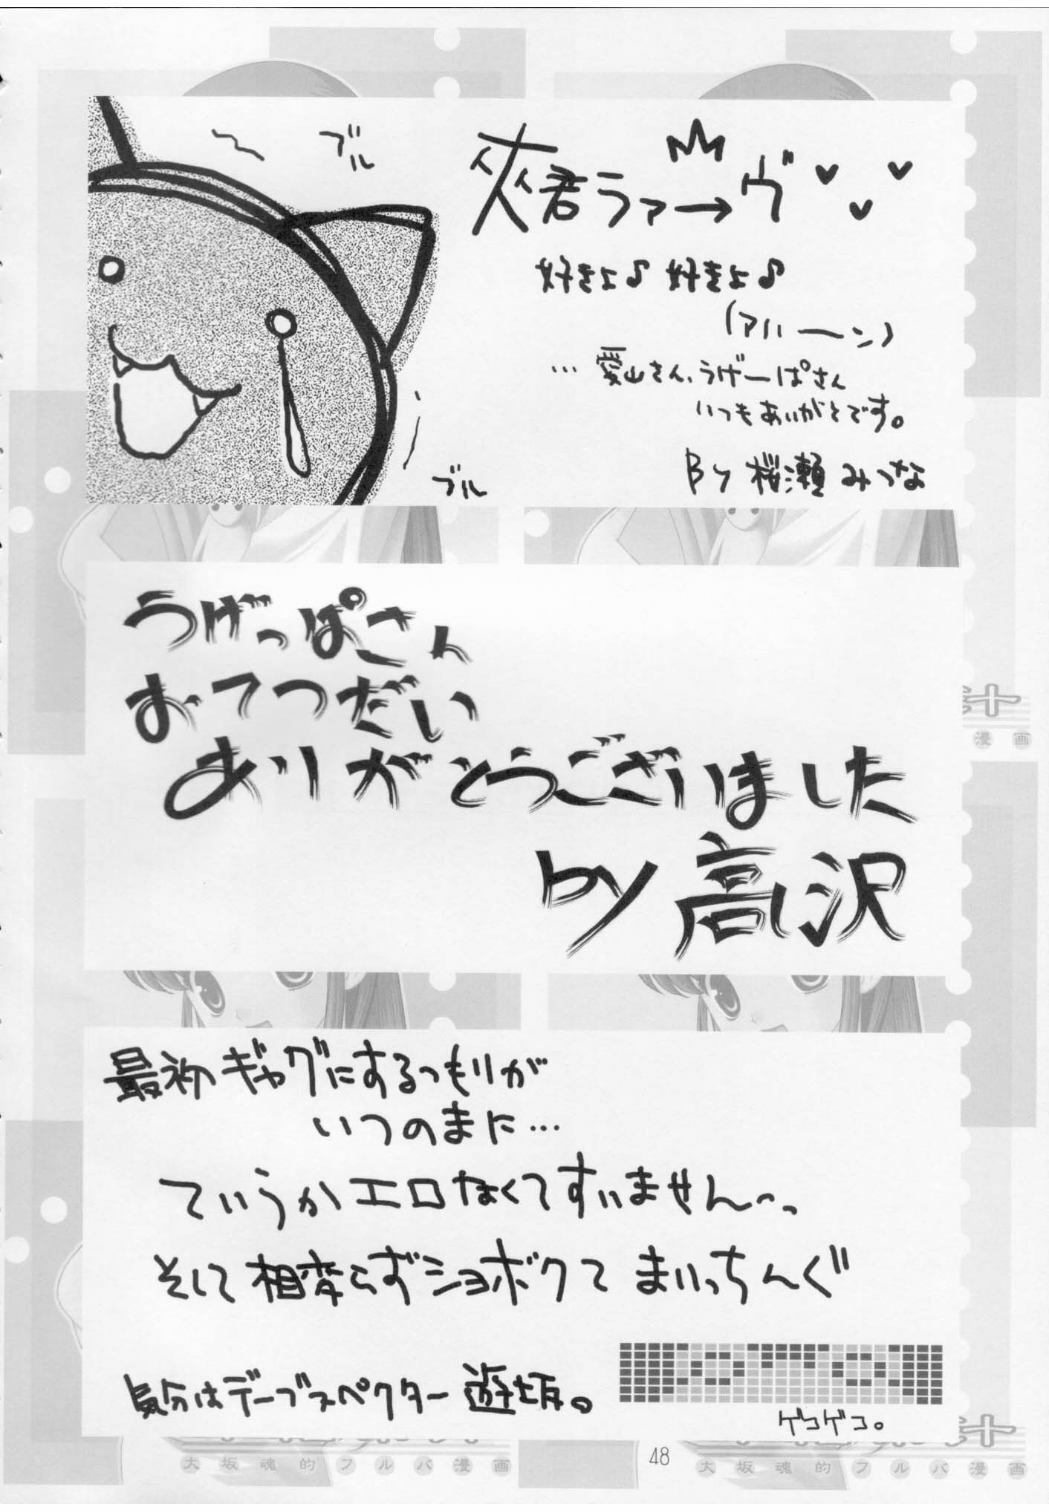 ブル
夾君ラァ→ヴ
好きよ♪ 好きよ♪
(アハーン)
… 愛山さん、うげーぱさん
いつもありがとです。
By 桜瀬 みつな
ブル
うげっぱさん
おてつだい
ありがとうございました
by 高沢
最初ギャグにするつもりが
いつのまに…
ていうかエロなくてすいません〜っ
そして相変らずショボクて まいっちんぐ
気分はデーブスペクター 遊坂。
ゲコゲコ。
漫画
大坂魂的フルバ漫画
48
大坂魂的フルバ漫画